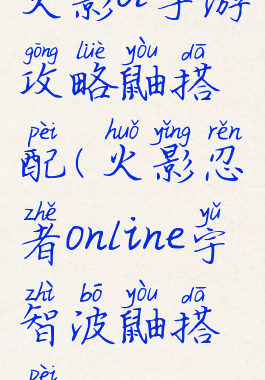 影ol
gōng lüè yòu dā
攻略鼬搭
pèi huǒ yǐng rěn
配(火影忍
zhě yǔ
者online宇
zhì bō yòu dā
智波鼬搭
pèi